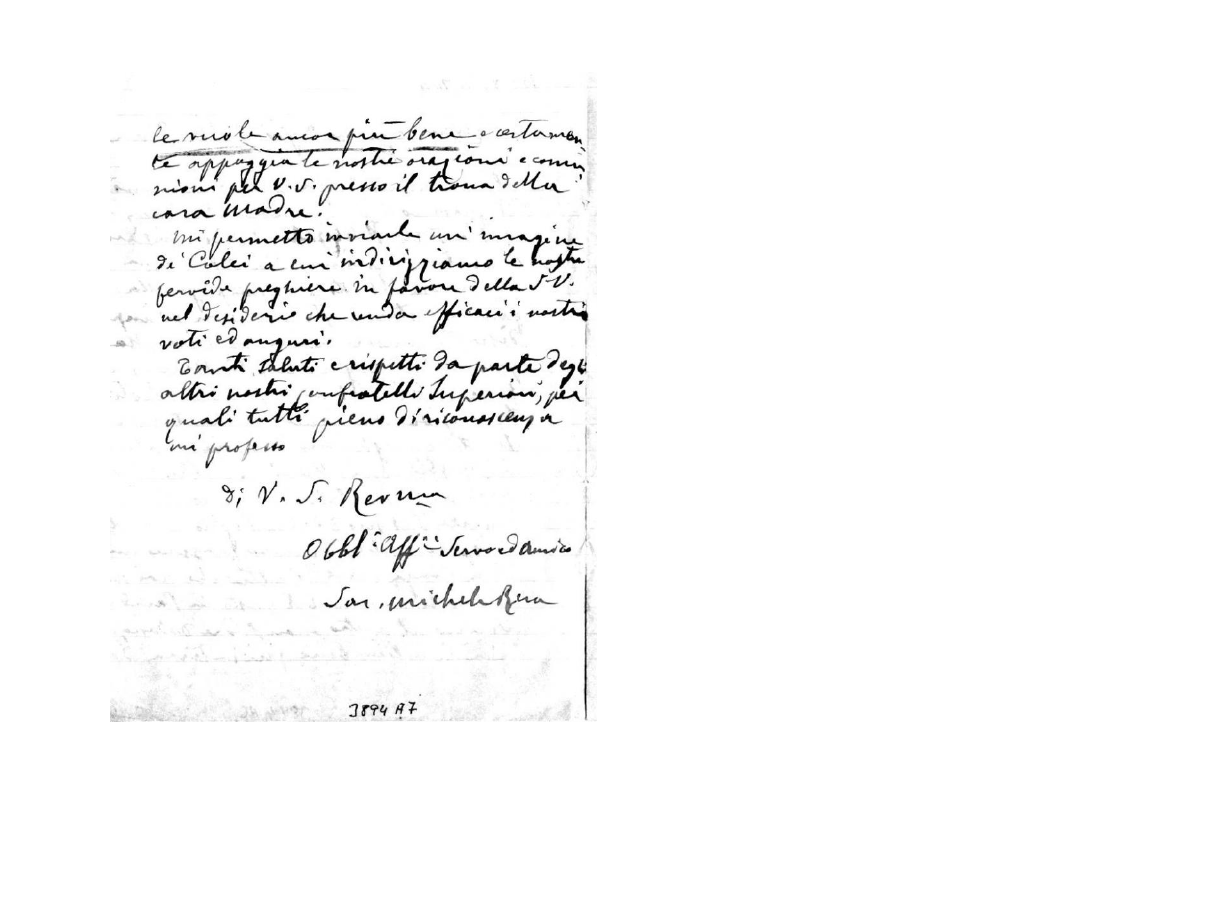 le vuole ancor più bene e certamen
te appoggia le nostre orazioni e comu
nioni per V. S. presso il trono della
cara Madre.
Mi permetto inviarle un' imagine
di Colei a cui indirizziamo le nostre
fervide preghiere in favore della S. V.
nel desiderio che renda efficaci i nostri
voti ed auguri.
Tanti saluti e rispetti da parte degli
altri nostri confratelli Superiori, pei
quali tutti pieno di riconoscenza
mi professo
di V. S. Revma
Obbl. Aff. Servo ed amico
Sac. Michele Rua
3894 A7